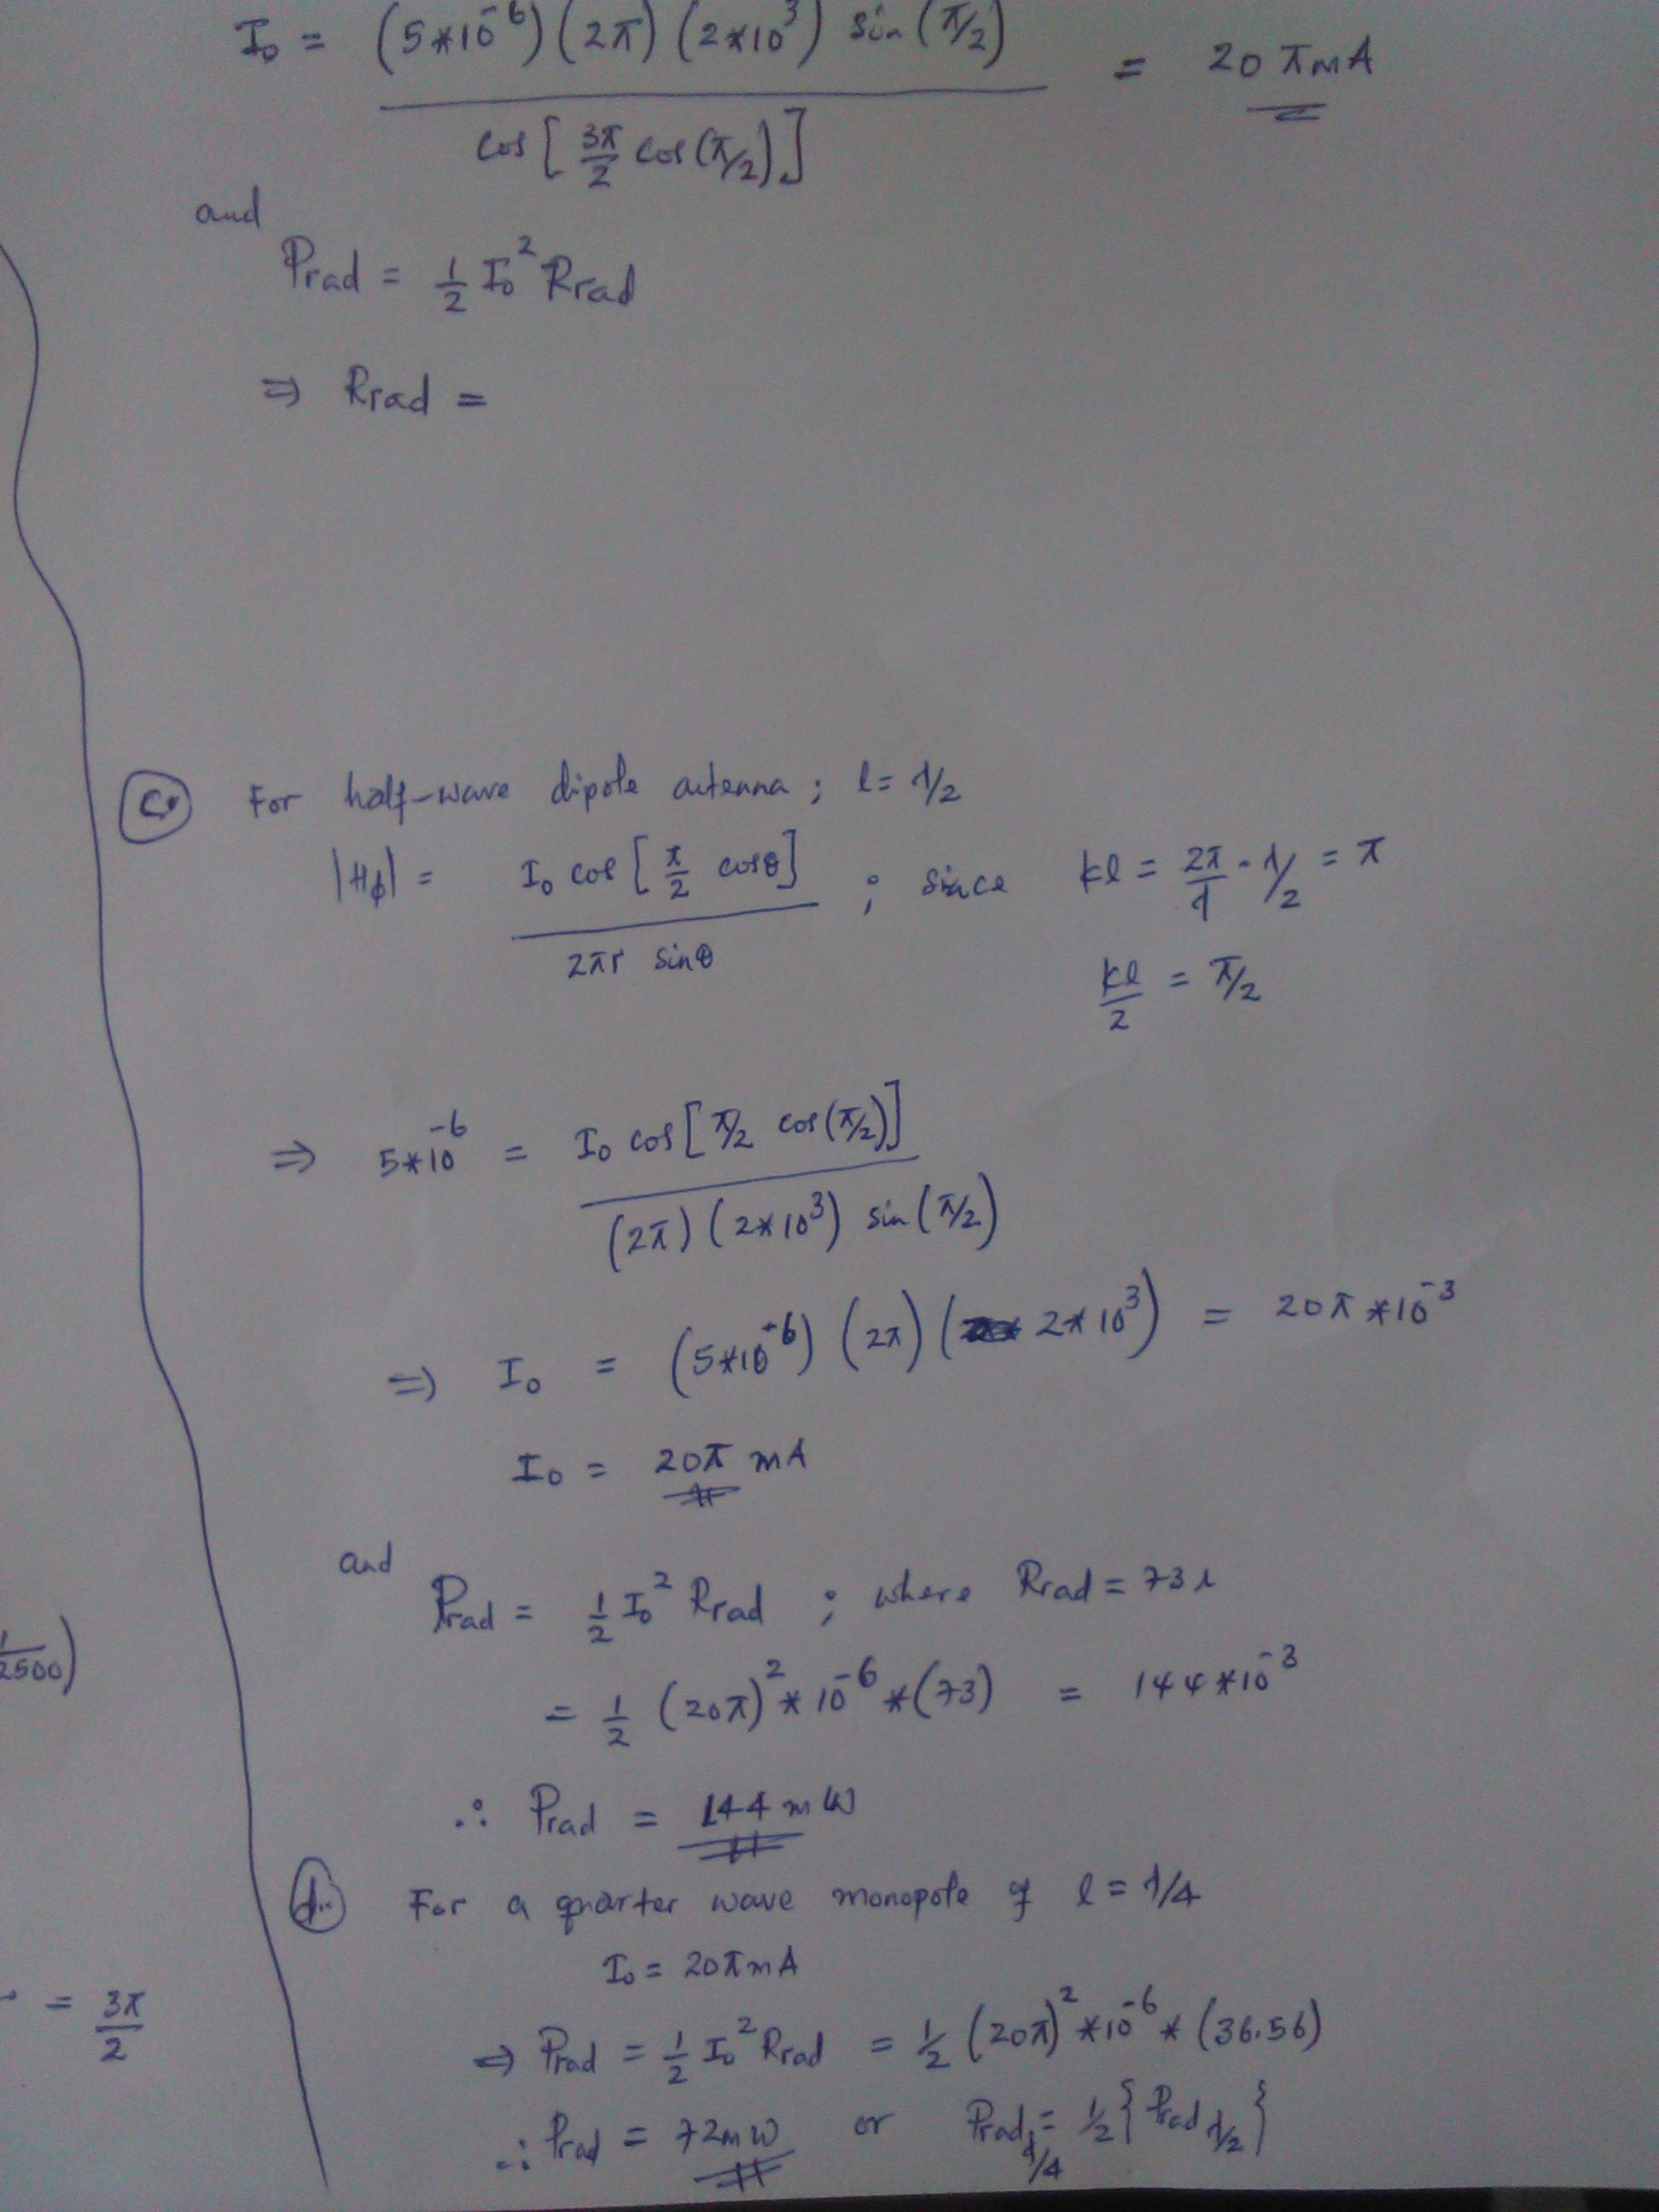 I₀ = (5*10⁻⁶)(2π)(2*10³) sin(π/2) / cos[3π/2 cos(π/2)] = 20πmA
and
Prad = 1/2 I₀² Rrad
⇒ Rrad =
c. For half-wave dipole antenna ; l = λ/2
|Hϕ| = I₀ cos[π/2 cosθ] / 2πr sinθ ; since kl = 2π/λ · λ/2 = π
kl/2 = π/2
⇒ 5*10⁻⁶ = I₀ cos[π/2 cos(π/2)] / (2π)(2*10³) sin(π/2)
⇒ I₀ = (5*10⁻⁶)(2π)(2*10³) = 20π*10⁻³
I₀ = 20π mA
and
Prad = 1/2 I₀² Rrad ; where Rrad = 73Ω
= 1/2 (20π)² * 10⁻⁶ * (73) = 144*10⁻³
∴ Prad = 144 mW
d. For a quarter wave monopole of l = λ/4
I₀ = 20πmA
⇒ Prad = 1/2 I₀² Rrad = 1/2 (20π)² *10⁻⁶ * (36.56)
∴ Prad = 72mW or Prad λ/4 = 1/2 {Prad λ/2}
1/2500)
= 3π/2